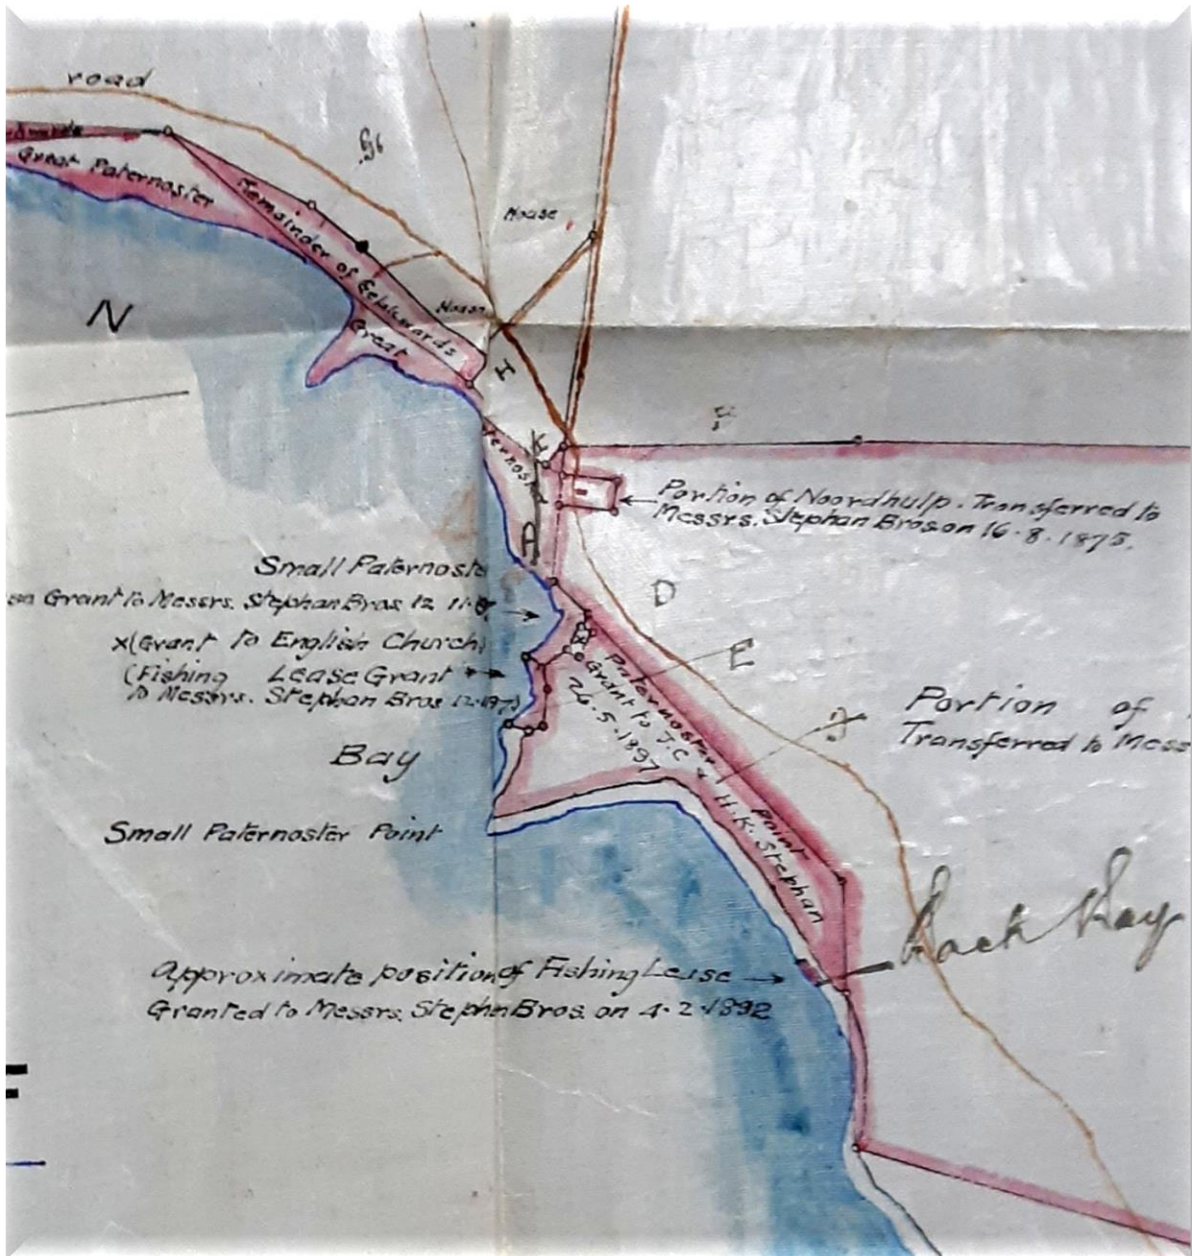 road
Great Paternoster
G
Remainder of
Great
House
House
N
H
F
K
A
Portion of Noordhulp. Transferred to
Messrs. Stephan Bros on 16.8.1875.
Small Paternoste
on Grant to Messrs. Stephan Bros 12 11
x(Grant to English Church)
(Fishing Lease Grant
to Messrs. Stephan Bros 12
D
E
Paternoster Point
Grant to J.C & H.K. Stephan
26.5.1897
J
Portion of
Transferred to Mess
Bay
Small Paternoster Point
Bay
Approximate position of Fishing Lease
Granted to Messrs. Stephn Bros. on 4.2.1892